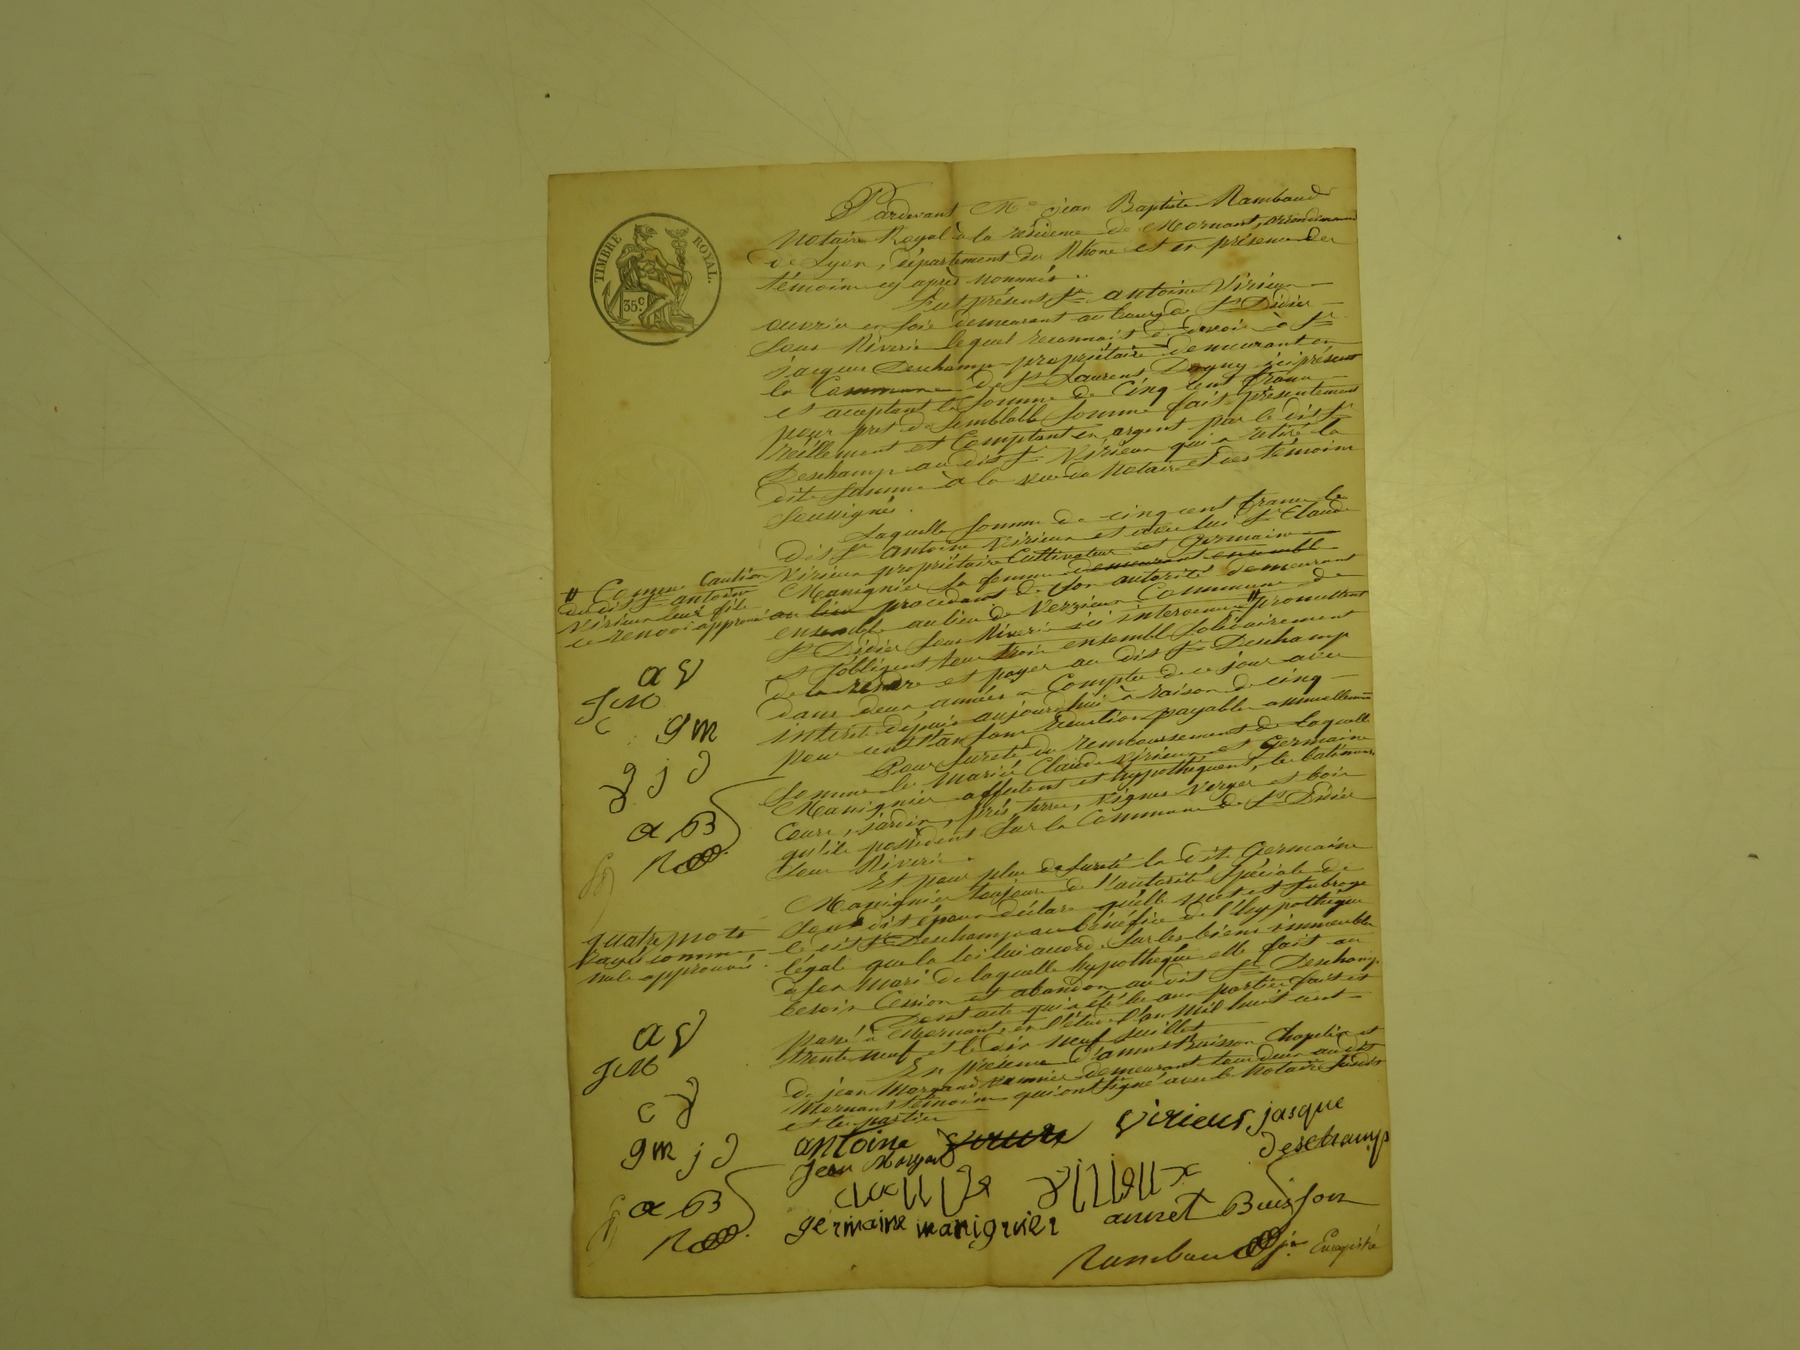 TIMBRE ROYAL.
35 c.
Pardevant Me jean Baptiste Rambaud
Notaire Royal à la résidence de Mornant, arrondissement
de Lyon, département du Rhone et en présence des
témoins cy après nommés ..
Fut présent Sr antoine Virieux
ouvrier en soie demeurant au bourg de St Didier
sous Riverie lequel reconnait devoir à Sr
jacques Deschamp propriétaire demeurant en
la Commune de St Laurent Dagny ici présent
et acceptant la somme de Cinq cent francs
pour pret de semblable somme fait présentement
réellement et Comptant en argent par le dit Sr
Deschamp au dit Sr Virieux qui a retiré la
dite somme à la vue du Notaire et des témoins
soussignés.
Laquelle somme de cinq cent francs le
dit Sr antoine Virieux et avec lui Sr Claude
Virieux propriétaire Cultivateur et Germaine
Manignier sa femme demeurant ensemble
au lieu procédant de son autorité demeurant
ensemble au lieu de Verzieux Commune de
St Didier sous Riverie ici intervenus # promettent
et s'obligent tous trois ensemble solidairement
de la rendre et payer au dit Sr Deschamp
dans deux années à Compter de ce jour avec
interêt depuis aujourd'hui à raison de cinq
pour cent l'an sans réduction payable annuellement
Pour sureté du remboursement de laquelle
somme les mariés Claude Virieux et Germaine
Manignier affectent et hypothéquent, les batiments
Cours, jardin, prés, terres, vignes verger et bois
qu'ils possèdent sur la Commune de St Didier
sous Riverie.
Et pour plus de sureté la dite Germaine
Manignier toujours de l'autorité spéciale de
son dit époux déclare qu'elle met et subroge
le dit Sr Deschamp au bénéfice de l'hypothèque
légale que la loi lui accorde sur les biens immeubles
de son mari de laquelle hypothèque elle fait au
besoin Cession et abandon au dit Sr Deschamp.
Dont acte qui a été lu aux parties fait et
passé à Mornant, en l'étude l'an mil huit cent
trente neuf et le dix neuf juillet
En présence d'annet Buisson Chapelier et
de jean Morgand demeurant tous deux au dit
Mornant témoins qui ont signé avec le Notaire susdit
et les parties
# Comme Caution
du dit Sr antoine
Virieux leur fils
ce renvoi approuvé
a V
JM
c
gm
j d
a B
R
quatre mots
rayés comme
nuls approuvés.
a V
JM
c V
gm j d
a B
R
antoine Virieux jasque
deschamp
Jean Morgand
claude virieux
germaine manignier annet Buisson
Rambaud Enregistré